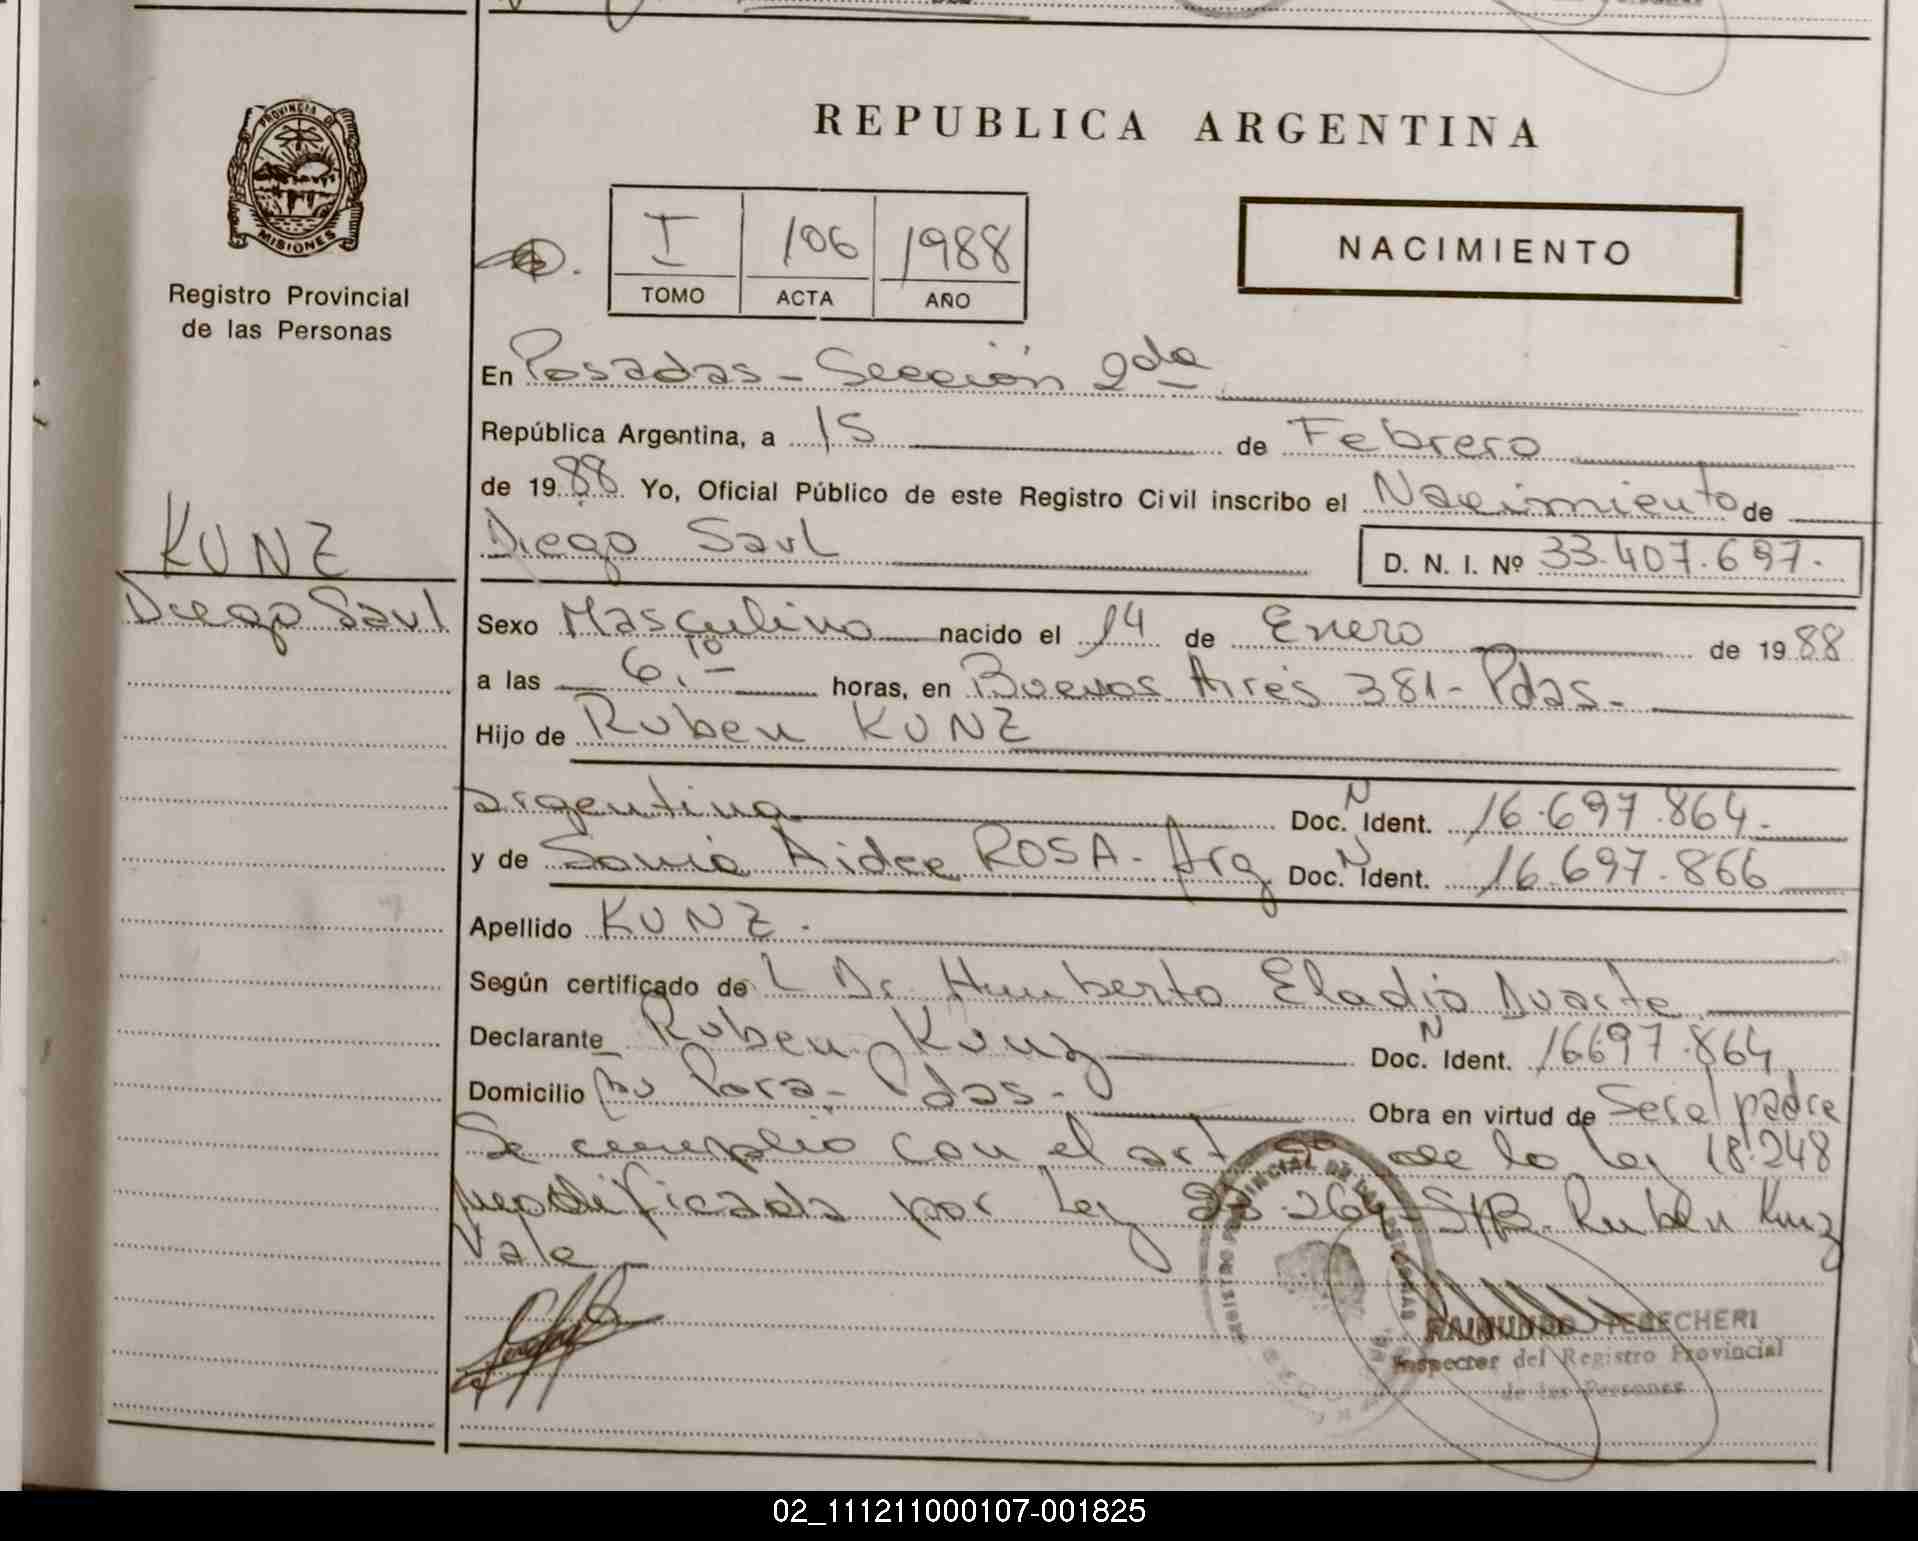 PROVINCIA DE
MISIONES
Registro Provincial
de las Personas
KUNZ
Diego Saul
REPUBLICA ARGENTINA
I 106 1988
TOMO ACTA AÑO
NACIMIENTO
En Posadas - Sección 2da
República Argentina, a 15 de Febrero
de 1988 Yo, Oficial Público de este Registro Civil inscribo el Nacimiento de
Diego Saul D. N. I. Nº 33.407.697.
Sexo Masculino nacido el 14 de Enero de 1988
a las 6.10 horas, en Buenos Aires 381 - Pdas.
Hijo de Ruben KUNZ
argentina Doc. N Ident. 16.697.864.
y de Sonia Aidee ROSA - Arg Doc. N Ident. 16.697.866
Apellido KUNZ.
Según certificado de L Dr. Humberto Eladio Duarte
Declarante Ruben Kunz Doc. N Ident. 16697.864
Domicilio Pora - Pdas. Obra en virtud de Ser el padre
Se cumplio con el art de la ley 18.248
modificada por Ley 23.264 - S/B. Ruben Kunz
Vale
RAIMUNDO TEBECHERI
Inspector del Registro Provincial
de las Personas
02_111211000107-001825